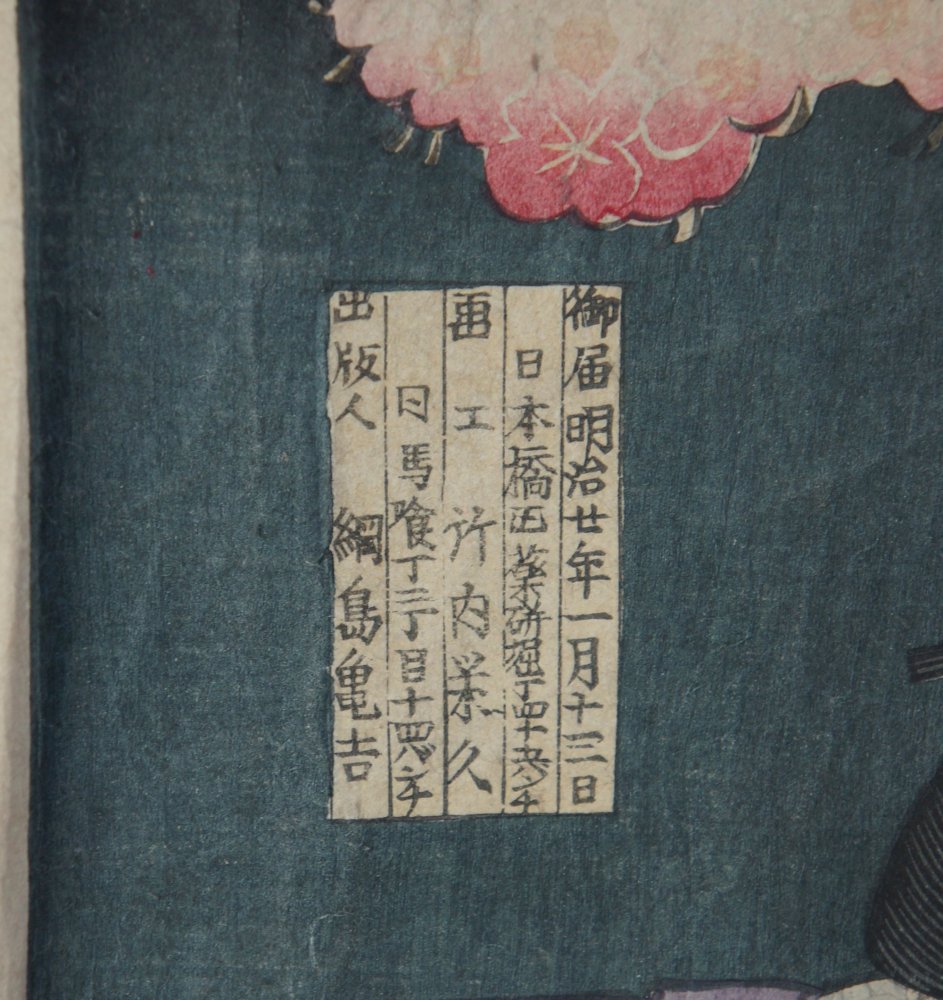 御届明治廿年一月十三日
日本橋区薬研堀丁四十九番チ
画工 竹内栄久
日馬喰丁二丁目十四番チ
出版人 綱島亀吉